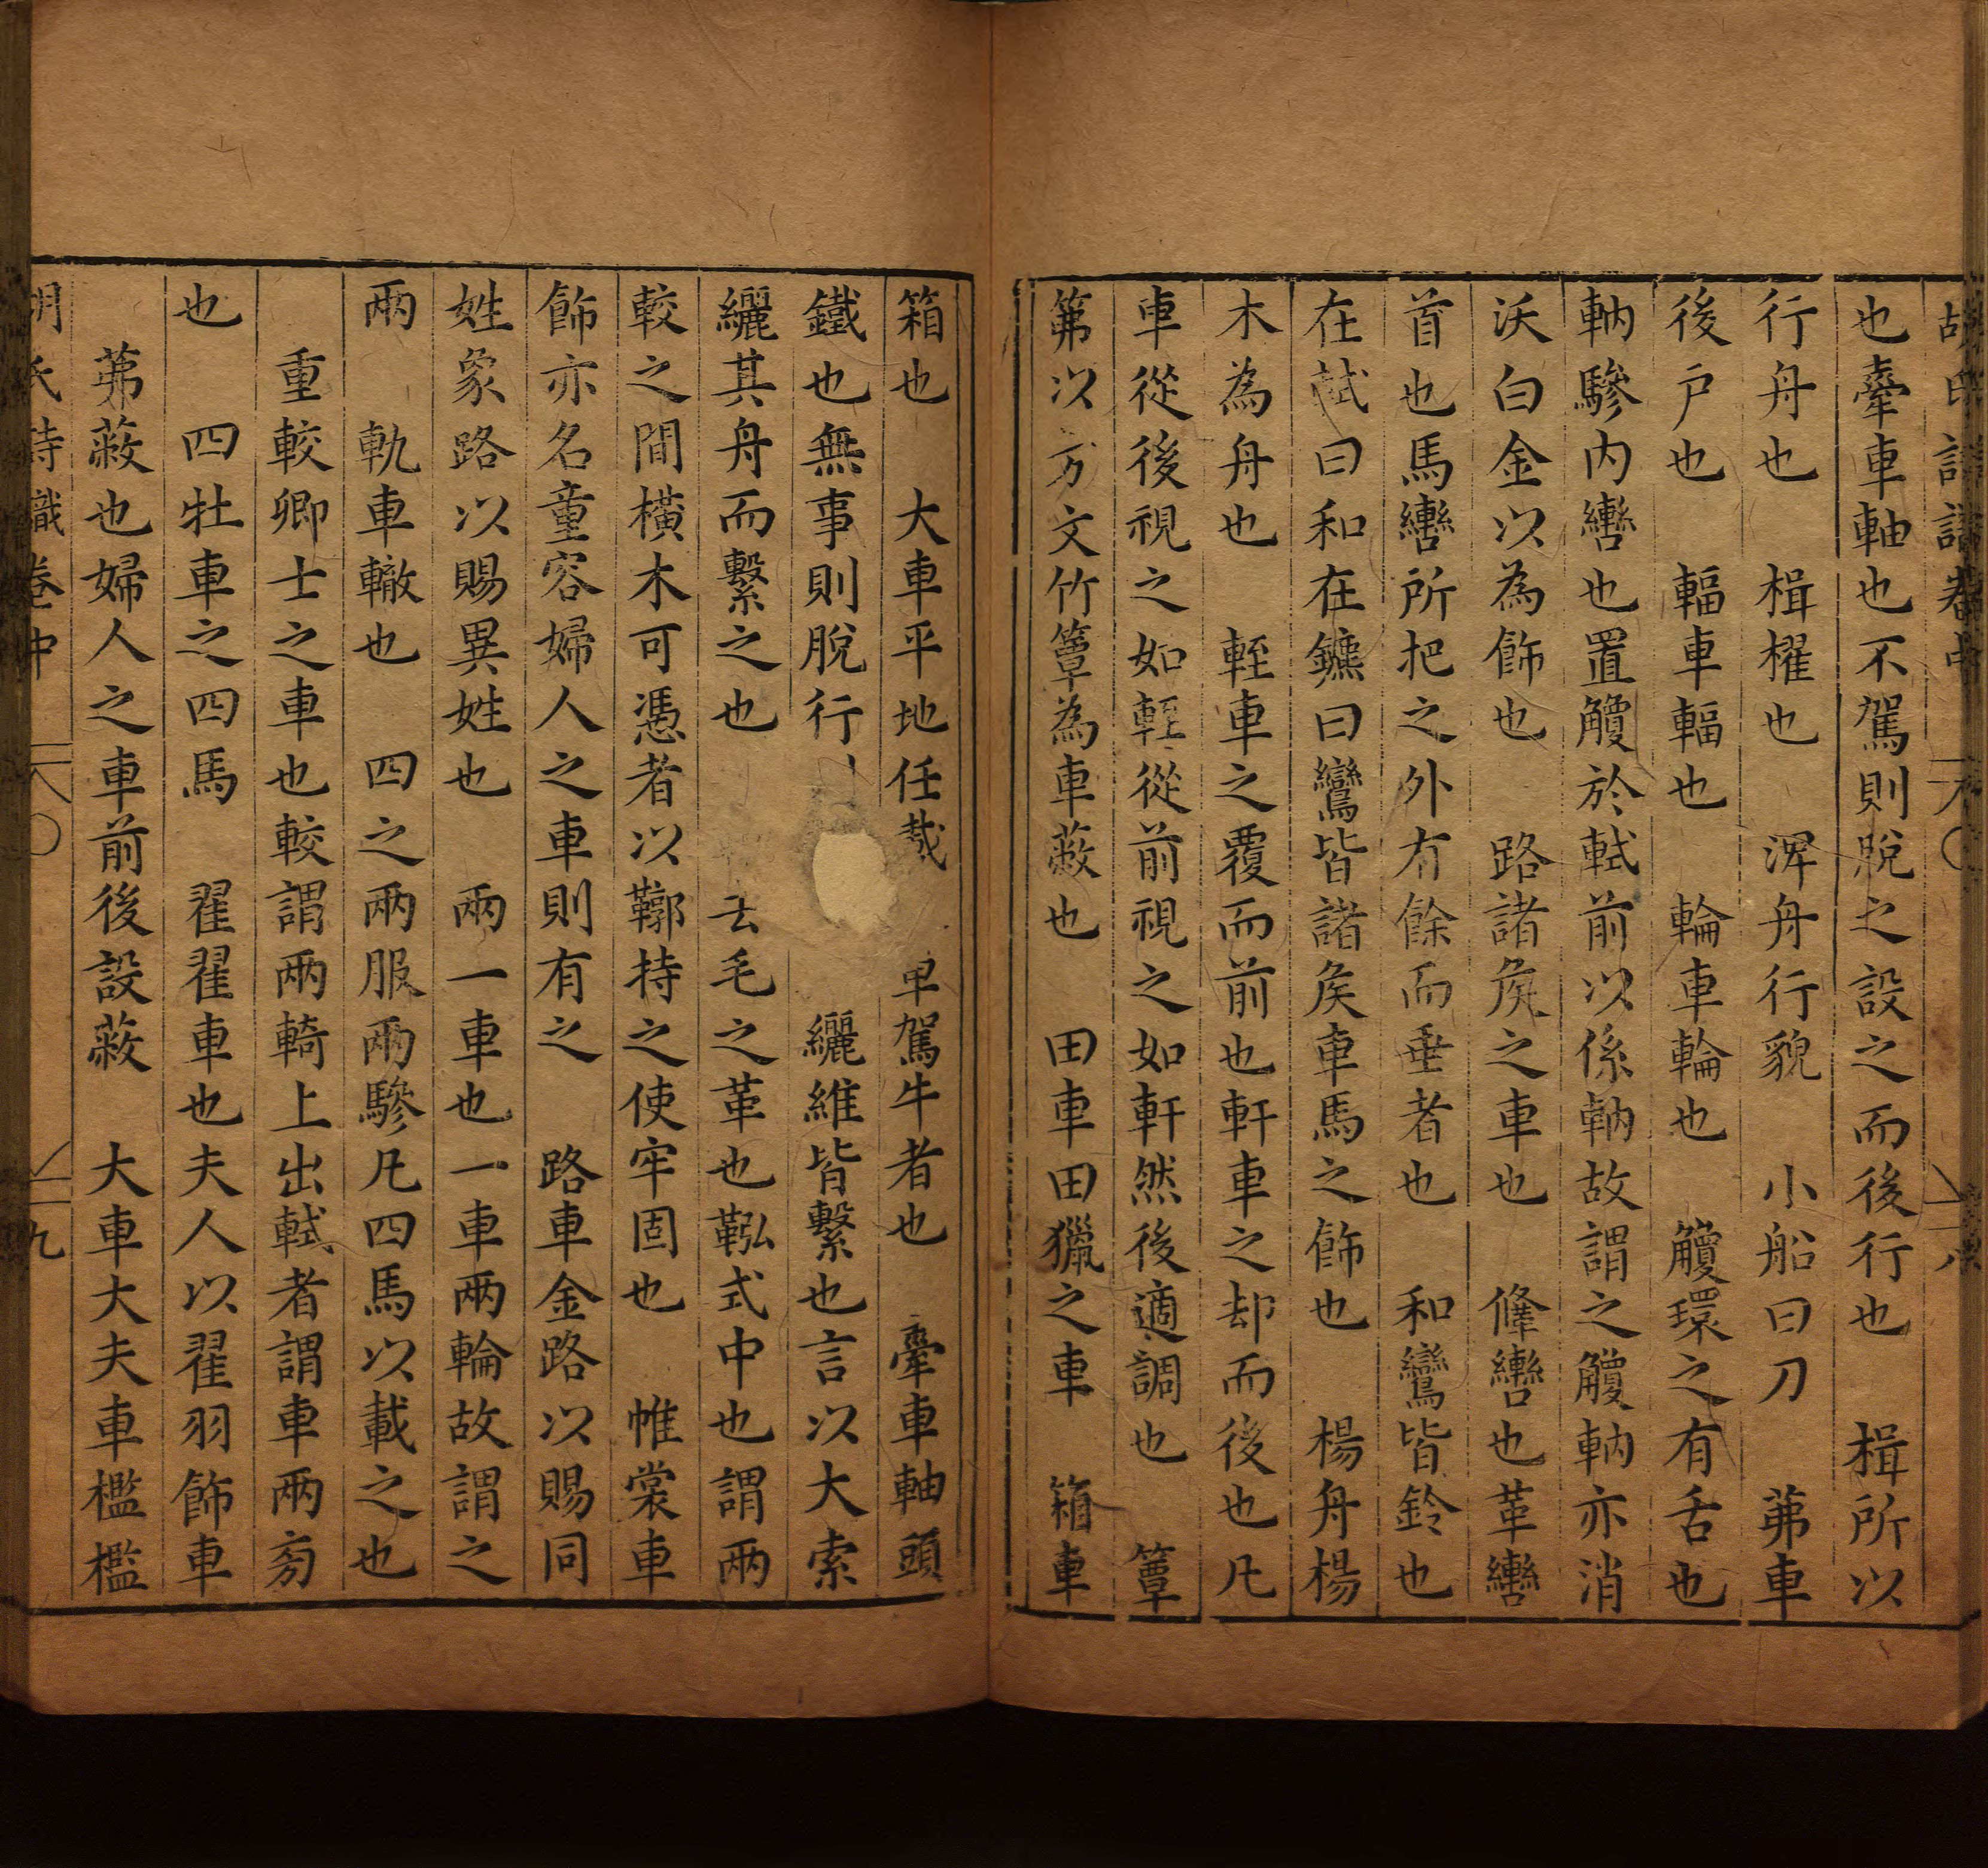 胡氏詩識卷中
也舝車軸也不駕則脫之設之而後行也 楫所以
行舟也 楫櫂也 淠舟行貌 小船曰刀 茀車
後戶也 輻車輻也 輪車輪也 觼環之有舌也
軜驂內轡也置觼於軾前以係軜故謂之觼軜亦消
沃白金以為飾也 路諸矦之車也 鞗轡也革轡
首也馬轡所把之外有餘而垂者也 和鸞皆鈴也
在軾曰和在鑣曰鸞皆諸矦車馬之飾也 楊舟楊
木為舟也 輊車之覆而前也軒車之却而後也凡
車從後視之如輊從前視之如軒然後適調也 簟
茀以方文竹簟為車蔽也 田車田獵之車 箱車
箱也 大車平地任載 車駕牛者也 舝車軸頭
鐵也無事則脫行 纚維皆繫也言以大索
纚其舟而繫之也 去毛之革也鞃式中也謂兩
較之間橫木可憑者以鞹持之使牢固也 帷裳車
飾亦名童容婦人之車則有之 路車金路以賜同
姓象路以賜異姓也 兩一車也一車兩輪故謂之
兩 軌車轍也 四之兩服兩驂凡四馬以載之也
重較卿士之車也較謂兩輢上出軾者謂車兩旁
也 四牡車之四馬 翟翟車也夫人以翟羽飾車
茀蔽也婦人之車前後設蔽 大車大夫車檻檻
胡氏詩識卷中 九